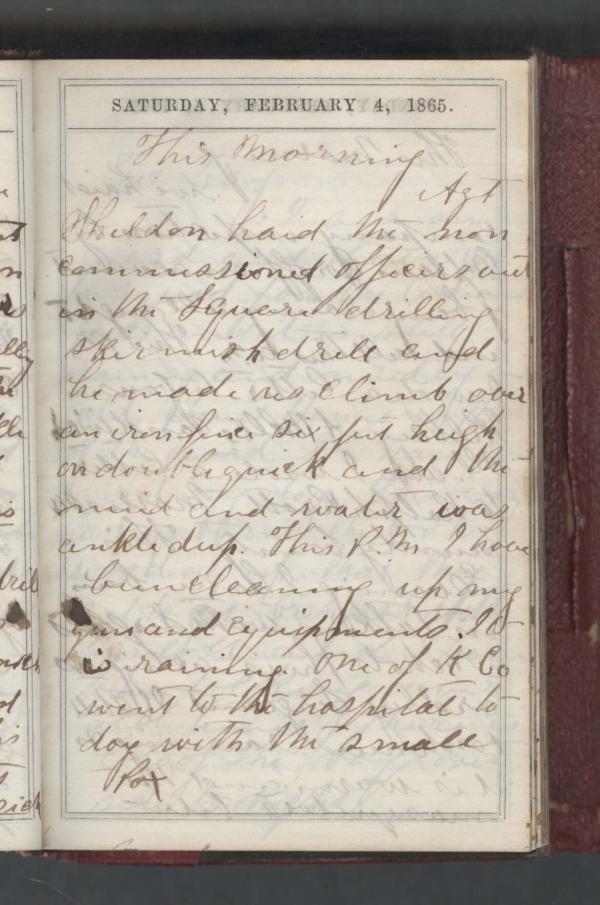 SATURDAY, FEBRUARY 4, 1865.
This Morning
Agt
Sheldon haid the non
commissioned officers out
in the Square drilling
skirmish drill and
he made us climb over
an iron fince six fut heigh
on doublequick and the
mud and water was
ankle dup. This P.M. I have
bun cleaning up my
gun and Equipments. It
is raining. One of K Co
went to the hospital to
day with the small
Pox